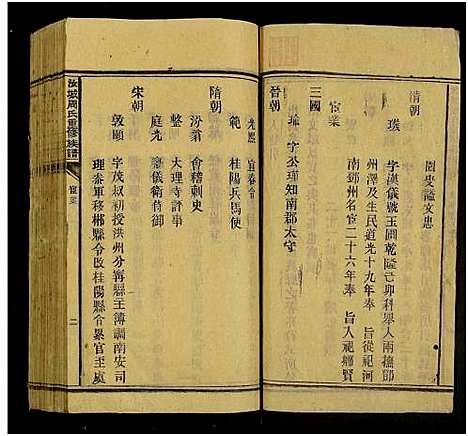 清朝
璞 字漢儀號玉圃乾隆己卯科舉人兩撫鄖
州澤及生民道光十九年奉 旨從祀河
南鄧州名宦二十六年奉 旨入祀鄉賢
宦業
三國
瑜 字公瑾知南郡太守
晉朝
光熙 宜春令
範 桂陽兵馬使
隋朝
汾翁 會稽刺史
整 大理寺評事
庭光 儀衛苟御
宋朝
敦頤 字茂叔初授洪州分寧縣主簿調南安司
理參軍移郴縣令改桂陽縣令累官至虞
汝城周氏重修族譜
宦業
二